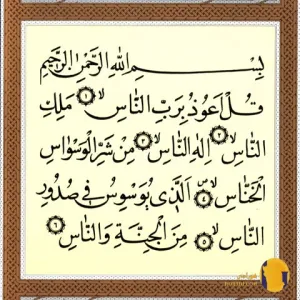 بِسْمِ اللَّهِ الرَّحْمَٰنِ الرَّحِيمِ
قُلْ أَعُوذُ بِرَبِّ النَّاسِ ١ مَلِكِ
النَّاسِ ٢ إِلَٰهِ النَّاسِ ٣ مِنْ شَرِّ الْوَسْوَاسِ
الْخَنَّاسِ ٤ الَّذِي يُوَسْوِسُ فِي صُدُورِ
النَّاسِ ٥ مِنَ الْجِنَّةِ وَالنَّاسِ ٦